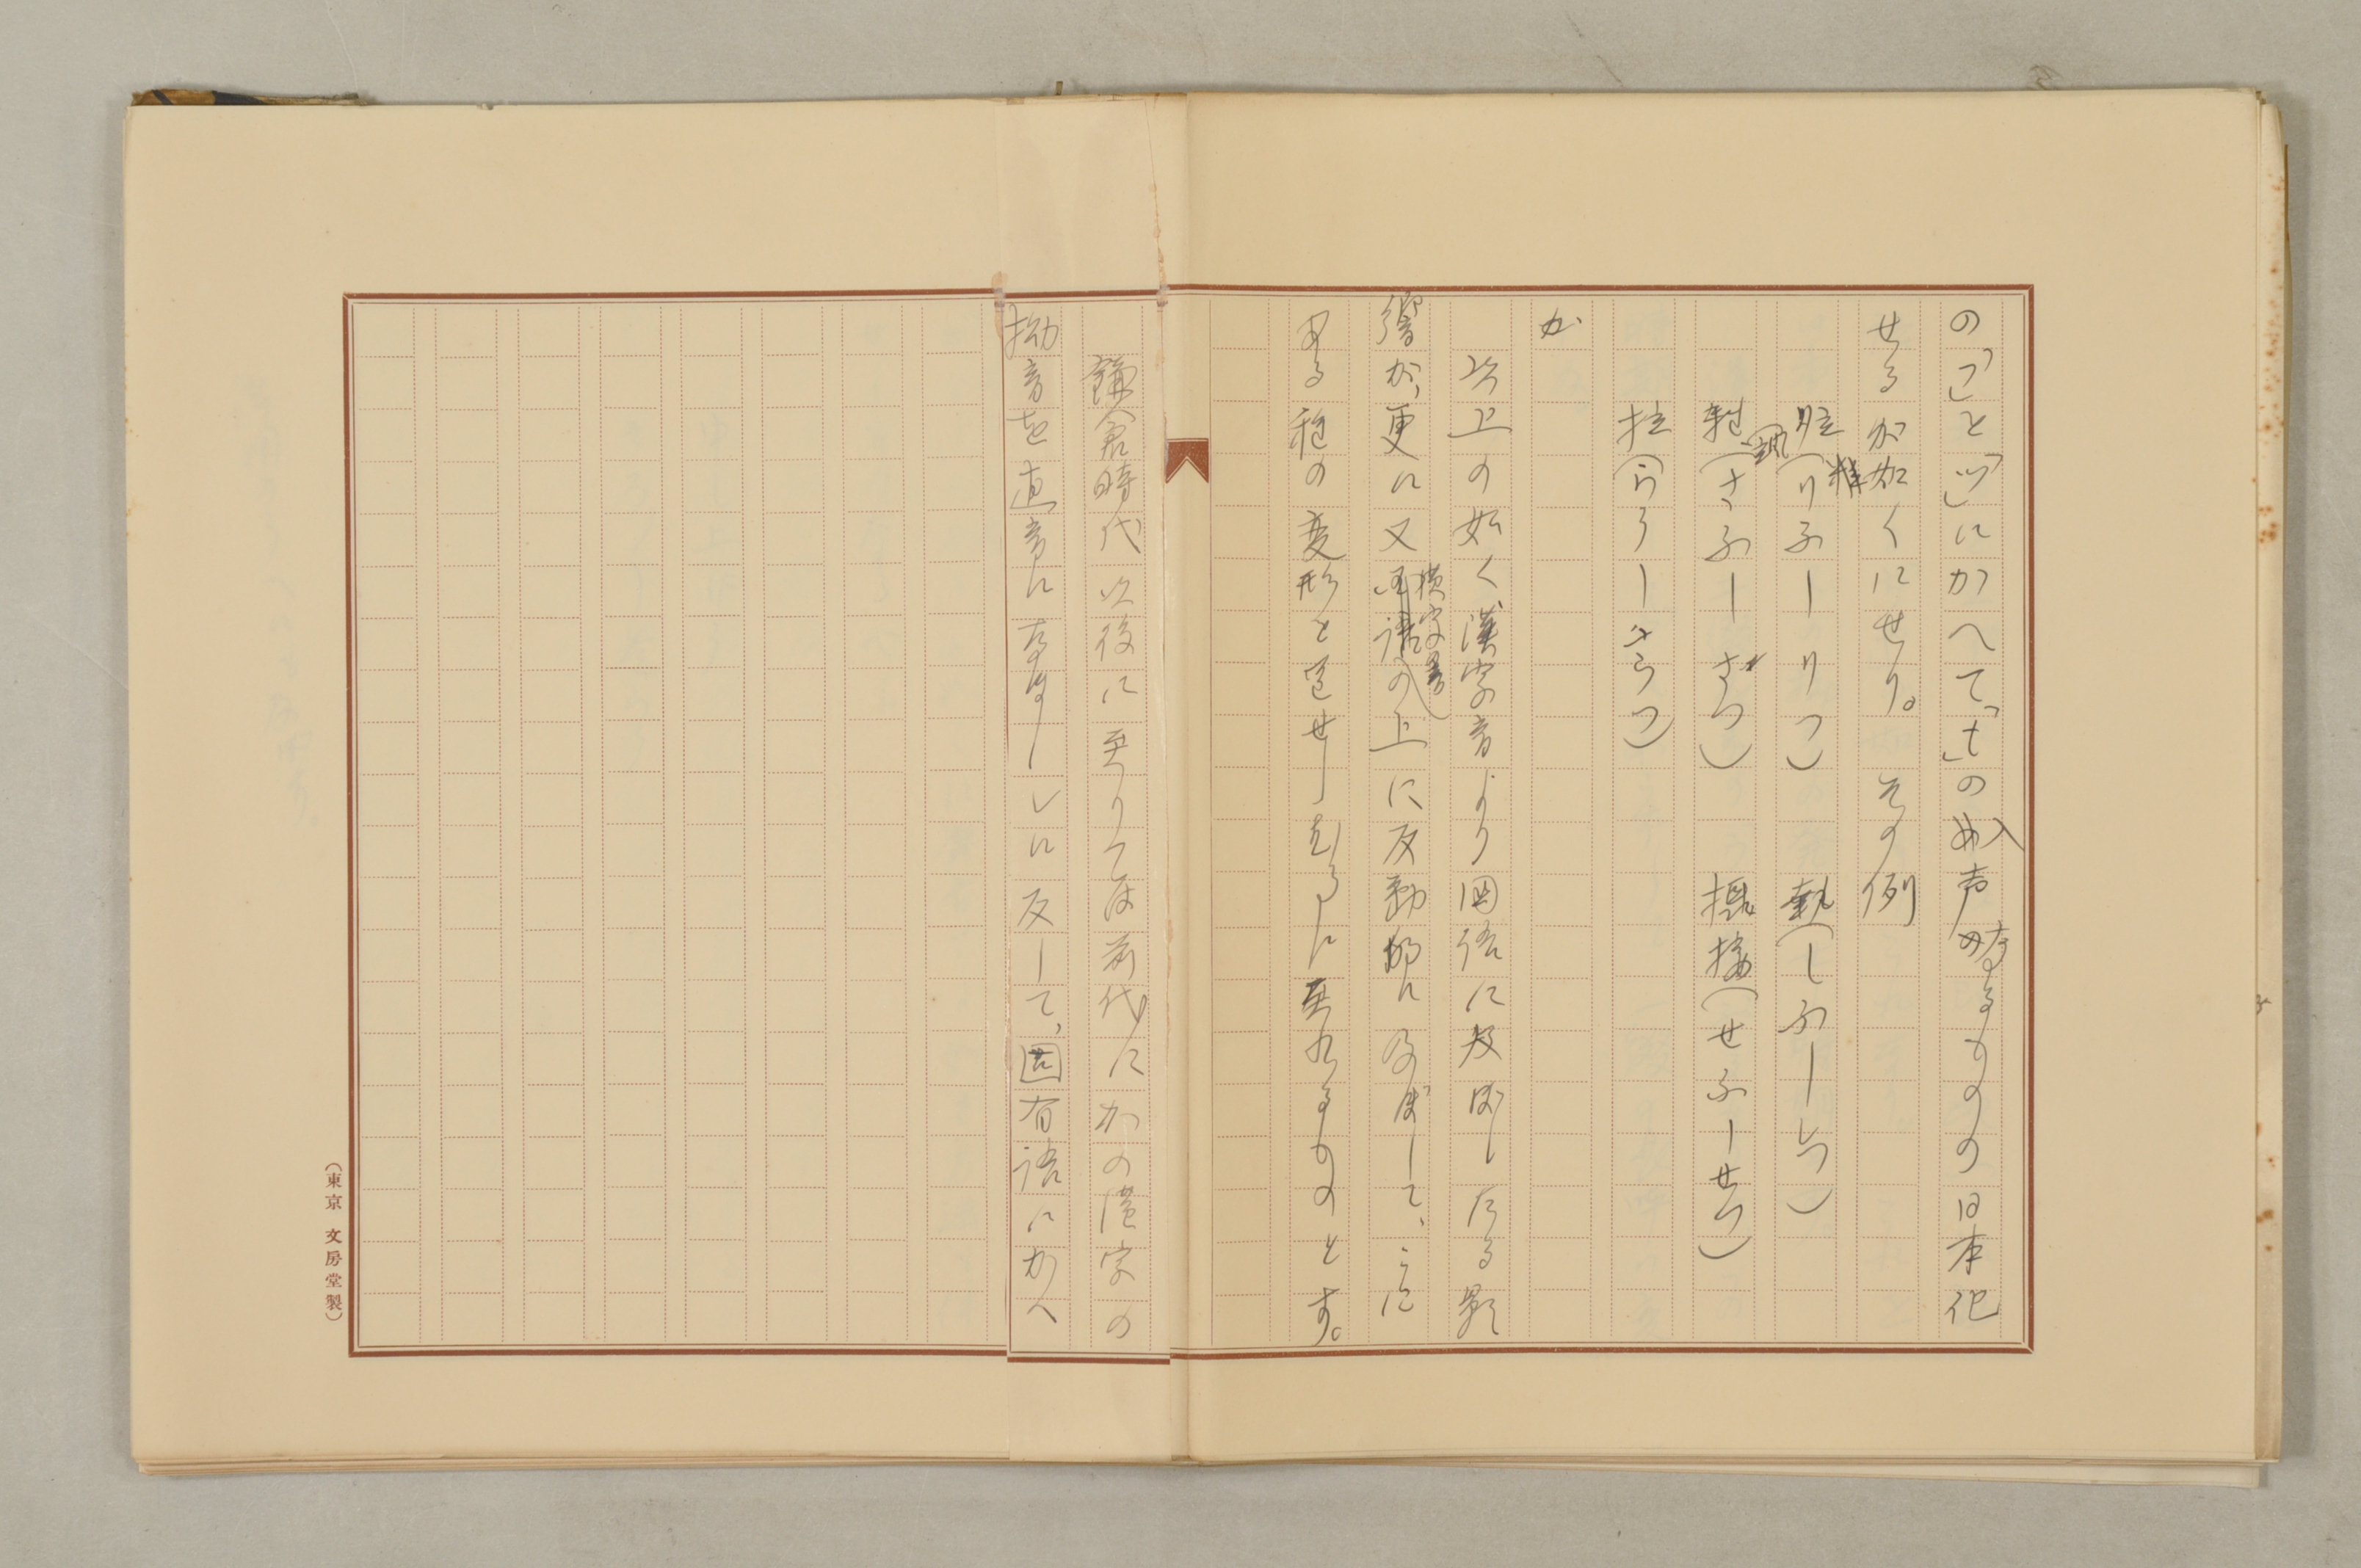 の「フ」と「ツ」にかへて、「t」の入声なるものの日本化
せるが如くにせり。その例
粒(りふ―りつ) 執(しふ―しつ)
(さふ―さつ) 摂接(せふ―せつ)
拉(らう―らつ)
か
以上の如く漢字の音より国語に及ぼしたる影
響が、更に又漢字音の上に反動的に及ぼして、こゝに
ある種の変形を宣せしむるに至れるものとす。
鎌倉時代以後に至りては前代にかの漢字の
拗音を直音に存ずしに反して、固有語にかへ
(東京 文房堂製)